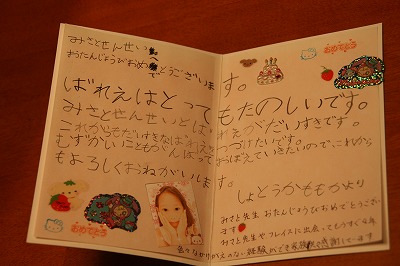 みさとせんせいへ
おうたんじょうびおめでとうございます。
ばれえはとってもたのしいです。
みさとせんせいとばれえがだいすきです。
これからもだいすきなばれえをつづけたいです。
むずかしいこともがんばっておぼえていきたいので、これから
もよろしくおねがいします。
しょとうかももかより
みさと先生 おたんじょうびおめでとうござい
ます
みさと先生やフレイスに出会ってもうすぐ4年
色々なかけがえのない経験ができ家族皆で感謝しています
おめでとう
おめでとう